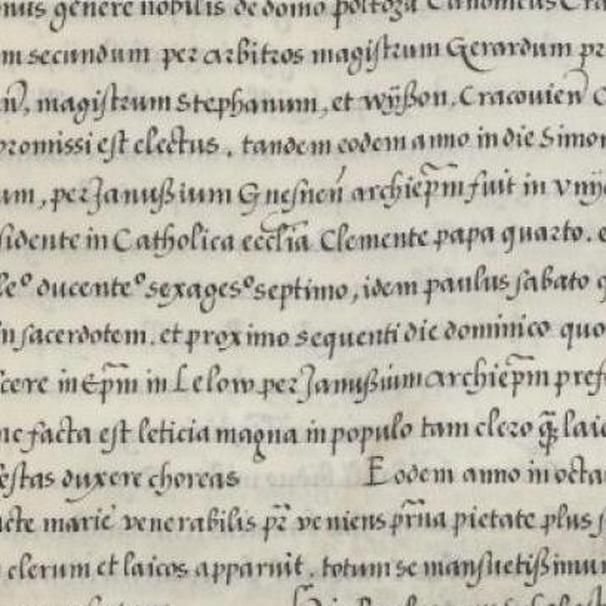 nus genere nobilis de domo poltoza Canonicus Cra
m secundum per arbitros magistrum Gerardum pr
magistrum Stephanum, et wÿßon, Cracouien̄ C
promissi est electus, tandem eodem anno in die Simon
um, per Janußium Gnesnen̄ archiep̄m fuit in vnÿ
sidente in Catholica eccl̄ia Clemente papa quarto. e
leº ducenteº sexagesº septimo, idem paulus sabato q
in sacerdotem, et proximo sequenti die dominico quo
cere in Ep̄m in Lelow per Janußium archiep̄m pref
nc facta est leticia magna in populo tam clero q̄ laic
festas duxere choreas Eodem anno in octa
cte marie venerabilis pr̄ veniens pr̄na pietate plus s
clerum et laicos apparuit, totum se mansuetißimum